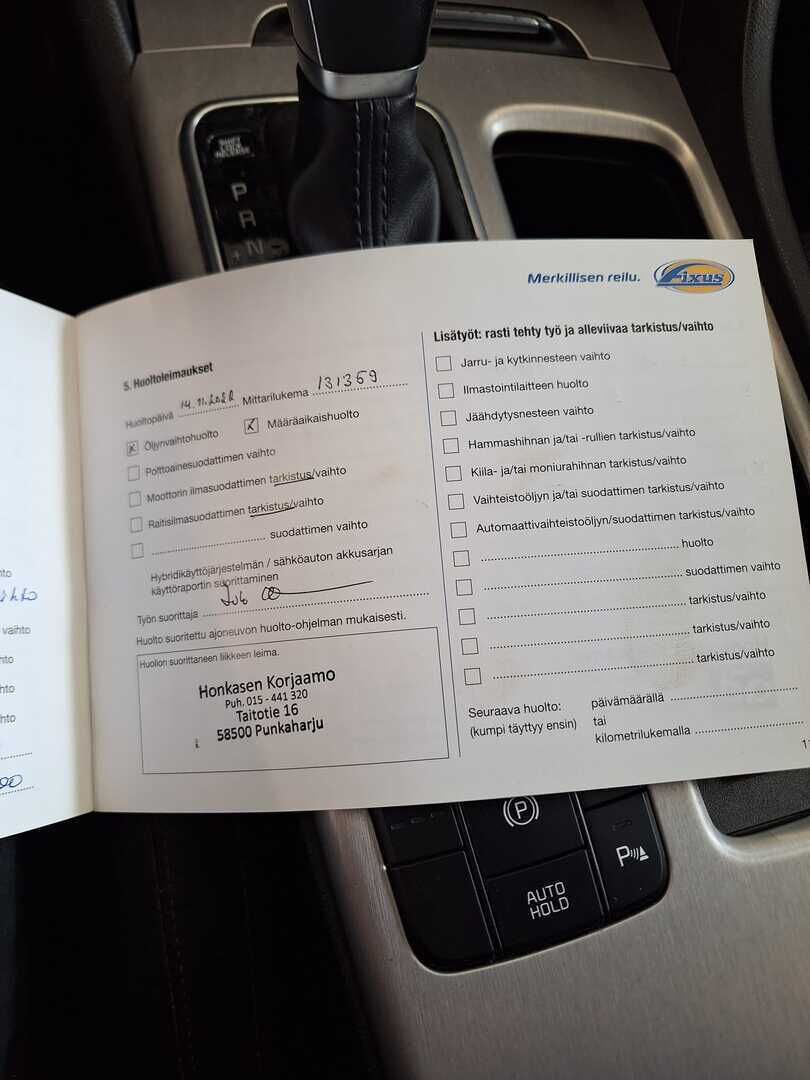 SHIFT
LOCK
RELEASE
P
R
N
Merkillisen reilu. Fixus
5. Huoltoleimaukset
Huoltopäivä 14.11.2022 Mittarilukema 131369
Öljynvaihtohuolto
Määräaikaishuolto
Polttoainesuodattimen vaihto
Moottorin ilmasuodattimen tarkistus/vaihto
Raitisilmasuodattimen tarkistus/vaihto
suodattimen vaihto
Hybridikäyttöjärjestelmän / sähköauton akkusarjan
käyttöraportin suorittaminen
Työn suorittaja
Huolto suoritettu ajoneuvon huolto-ohjelman mukaisesti.
Huollon suorittaneen liikkeen leima.
Honkasen Korjaamo
Puh. 015 - 441 320
Taitotie 16
58500 Punkaharju
Lisätyöt: rasti tehty työ ja alleviivaa tarkistus/vaihto
Jarru- ja kytkinnesteen vaihto
Ilmastointilaitteen huolto
Jäähdytysnesteen vaihto
Hammashihnan ja/tai -rullien tarkistus/vaihto
Kiila- ja/tai moniurahihnan tarkistus/vaihto
Vaihteistoöljyn ja/tai suodattimen tarkistus/vaihto
Automaattivaihteistoöljyn/suodattimen tarkistus/vaihto
huolto
suodattimen vaihto
tarkistus/vaihto
tarkistus/vaihto
tarkistus/vaihto
Seuraava huolto: päivämäärällä
(kumpi täyttyy ensin) tai
kilometrilukemalla
11
vaihto
P
AUTO
HOLD
P